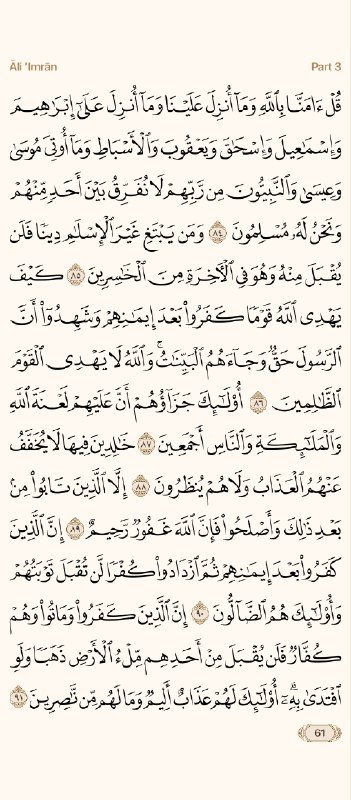 Āli 'Imrān
Part 3
قُلْ ءَامَنَّا بِٱللَّهِ وَمَآ أُنزِلَ عَلَيْنَا وَمَآ أُنزِلَ عَلَىٰٓ إِبْرَٰهِيمَ
وَإِسْمَٰعِيلَ وَإِسْحَٰقَ وَيَعْقُوبَ وَٱلْأَسْبَاطِ وَمَآ أُوتِيَ مُوسَىٰ
وَعِيسَىٰ وَٱلنَّبِيُّونَ مِن رَّبِّهِمْ لَا نُفَرِّقُ بَيْنَ أَحَدٍ مِّنْهُمْ
وَنَحْنُ لَهُۥ مُسْلِمُونَ ٨٤ وَمَن يَبْتَغِ غَيْرَ ٱلْإِسْلَٰمِ دِينًا فَلَن
يُقْبَلَ مِنْهُ وَهُوَ فِي ٱلْأٓخِرَةِ مِنَ ٱلْخَٰسِرِينَ ٨٥ كَيْفَ
يَهْدِي ٱللَّهُ قَوْمًا كَفَرُوا۟ بَعْدَ إِيمَٰنِهِمْ وَشَهِدُوٓا۟ أَنَّ
ٱلرَّسُولَ حَقٌّ وَجَآءَهُمُ ٱلْبَيِّنَٰتُۚ وَٱللَّهُ لَا يَهْدِي ٱلْقَوْمَ
ٱلظَّٰلِمِينَ ٨٦ أُو۟لَٰٓئِكَ جَزَآؤُهُمْ أَنَّ عَلَيْهِمْ لَعْنَةَ ٱللَّهِ
وَٱلْمَلَٰٓئِكَةِ وَٱلنَّاسِ أَجْمَعِينَ ٨٧ خَٰلِدِينَ فِيهَا لَا يُخَفَّفُ
عَنْهُمُ ٱلْعَذَابُ وَلَا هُمْ يُنظَرُونَ ٨٨ إِلَّا ٱلَّذِينَ تَابُوا۟ مِنۢ
بَعْدِ ذَٰلِكَ وَأَصْلَحُوا۟ فَإِنَّ ٱللَّهَ غَفُورٌ رَّحِيمٌ ٨٩ إِنَّ ٱلَّذِينَ
كَفَرُوا۟ بَعْدَ إِيمَٰنِهِمْ ثُمَّ ٱزْدَادُوا۟ كُفْرًا لَّن تُقْبَلَ تَوْبَتُهُمْ
وَأُو۟لَٰٓئِكَ هُمُ ٱلضَّآلُّونَ ٩٠ إِنَّ ٱلَّذِينَ كَفَرُوا۟ وَمَاتُوا۟ وَهُمْ
كُفَّارٌ فَلَن يُقْبَلَ مِنْ أَحَدِهِم مِّلْءُ ٱلْأَرْضِ ذَهَبًا وَلَوِ
ٱفْتَدَىٰ بِهِۦٓۗ أُو۟لَٰٓئِكَ لَهُمْ عَذَابٌ أَلِيمٌ وَمَا لَهُم مِّن نَّٰصِرِينَ ٩١
61